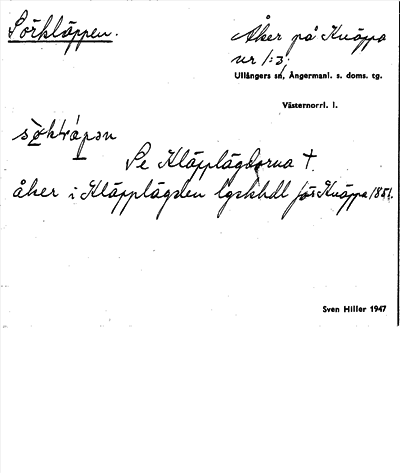 Sörkläppen.
Åker på Knäppa
nr 1:3,
Ullångers sn, Ångermanl. s. doms. tg.
Västernorrl. l.
Se Kläpplägdorna †.
åker i Kläpplägden lgskhdl för Knäppa 1881.
Sven Hiller 1947